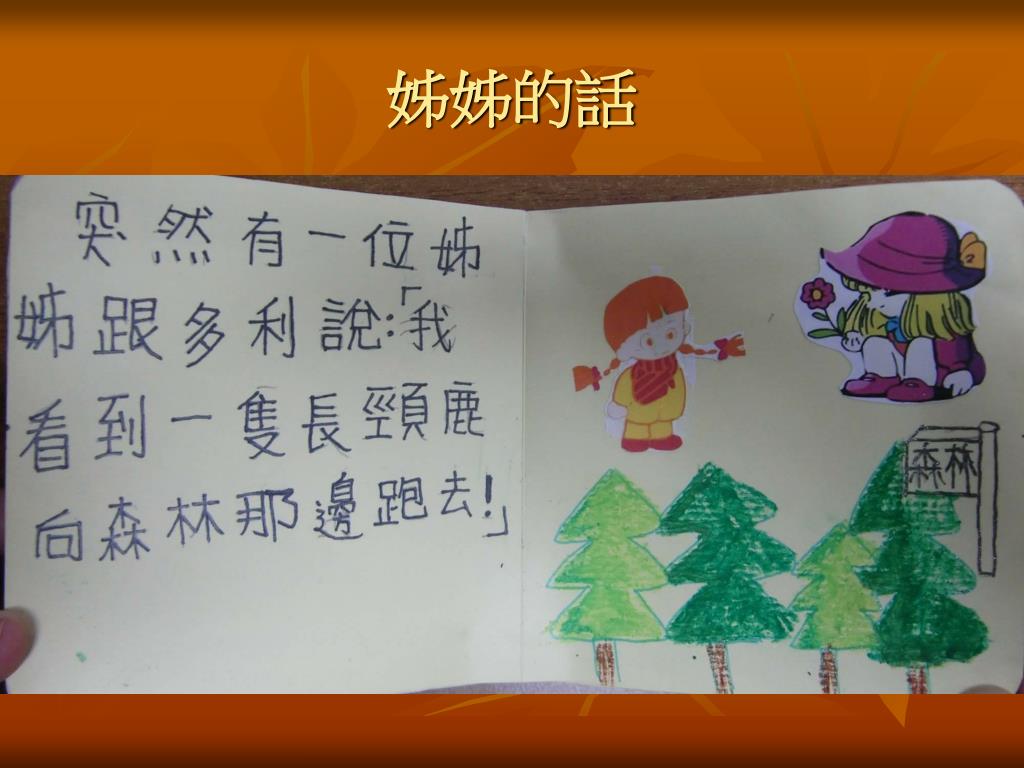 姊姊的話
突然有一位姊
姊跟多利說:「我
看到一隻長頸鹿
向森林那邊跑去!」
森林